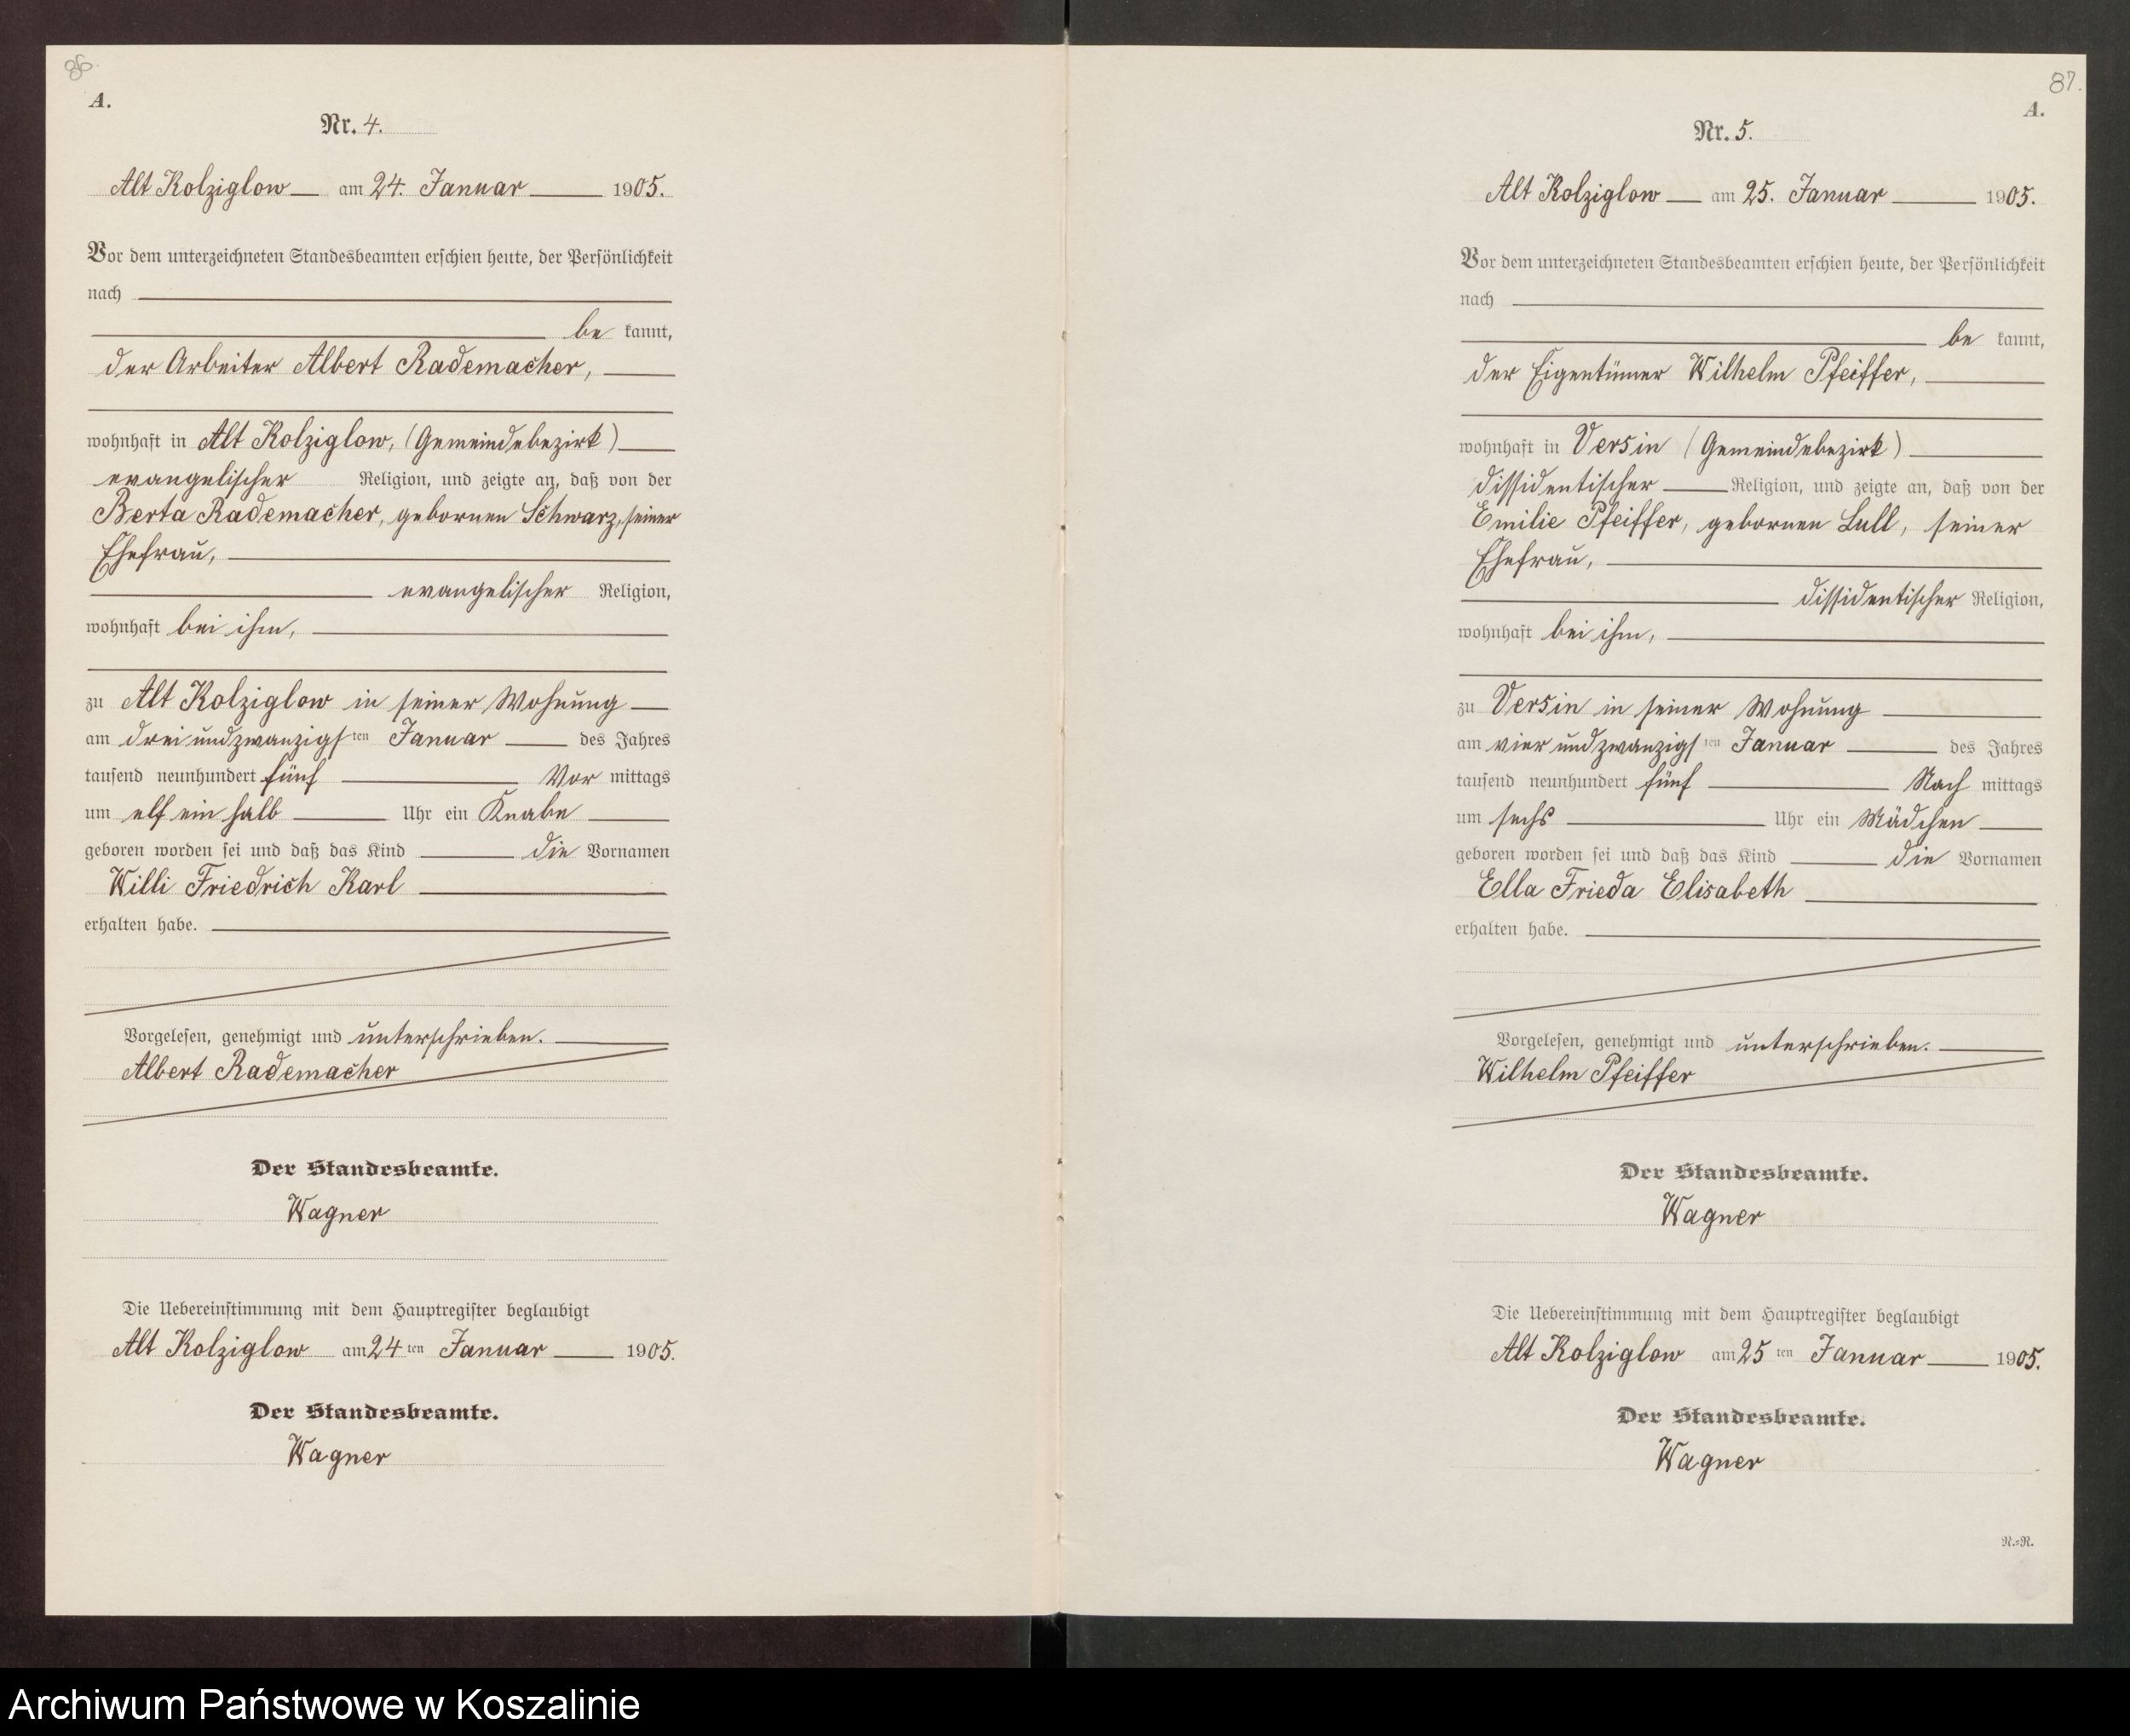 86.
A.
Nr. 4.
Alt Kolziglow am 24. Januar 1905.
Vor dem unterzeichneten Standesbeamten erschien heute, der Persönlichkeit
nach
be kannt,
der Arbeiter Albert Rademacher,
wohnhaft in Alt Kolziglow, (Gemeindebezirk)
evangelischer Religion, und zeigte an, daß von der
Berta Rademacher, gebornen Schwarz, seiner
Ehefrau,
evangelischer Religion,
wohnhaft bei ihm,
zu Alt Kolziglow in seiner Wohnung
am drei und zwanzigsten Januar des Jahres
tausend neunhundert fünf Vor mittags
um elf ein halb Uhr ein Knabe
geboren worden sei und daß das Kind die Vornamen
Willi Friedrich Karl
erhalten habe.
Vorgelesen, genehmigt und unterschrieben.
Albert Rademacher
Der Standesbeamte.
Wagner
Die Uebereinstimmung mit dem Hauptregister beglaubigt
Alt Kolziglow am 24 ten Januar 1905.
Der Standesbeamte.
Wagner
87.
A.
Nr. 5.
Alt Kolziglow am 25. Januar 1905.
Vor dem unterzeichneten Standesbeamten erschien heute, der Persönlichkeit
nach
be kannt,
der Eigentümer Wilhelm Pfeiffer,
wohnhaft in Versin (Gemeindebezirk)
dissidentischer Religion, und zeigte an, daß von der
Emilie Pfeiffer, gebornen Lull, seiner
Ehefrau,
dissidentischer Religion,
wohnhaft bei ihm,
zu Versin in seiner Wohnung
am vier und zwanzigsten Januar des Jahres
tausend neunhundert fünf Nach mittags
um sechs Uhr ein Mädchen
geboren worden sei und daß das Kind die Vornamen
Ella Frieda Elisabeth
erhalten habe.
Vorgelesen, genehmigt und unterschrieben.
Wilhelm Pfeiffer
Der Standesbeamte.
Wagner
Die Uebereinstimmung mit dem Hauptregister beglaubigt
Alt Kolziglow am 25 ten Januar 1905.
Der Standesbeamte.
Wagner
N.=R.
Archiwum Państwowe w Koszalinie